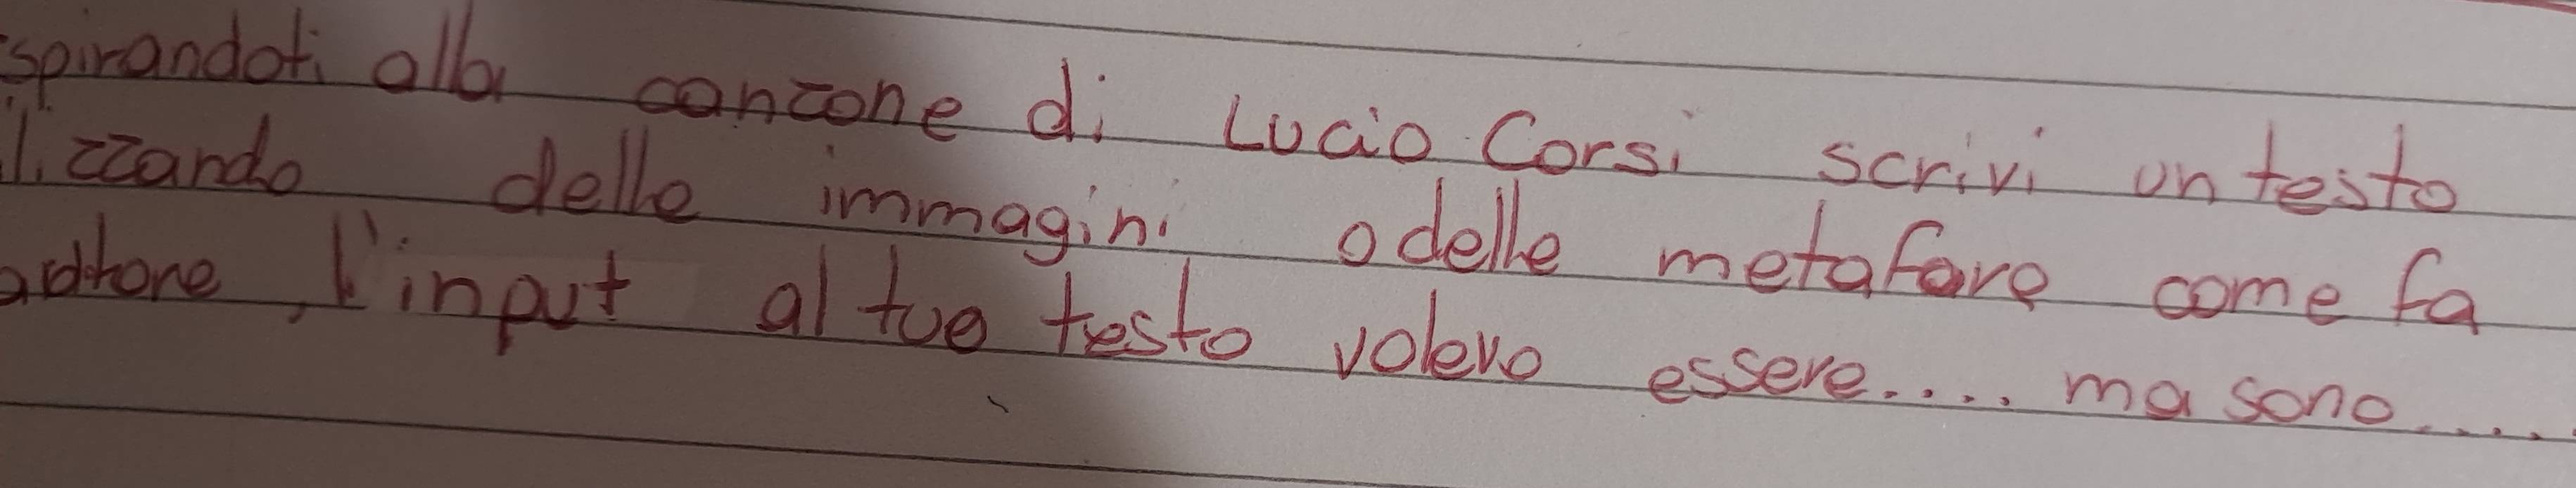 spirandoti alla canzone di Lucio Corsi scrivi un testo
lizzando delle immagini o delle metafore come fa
autore, l'input al tuo testo volevo essere.... ma sono.....